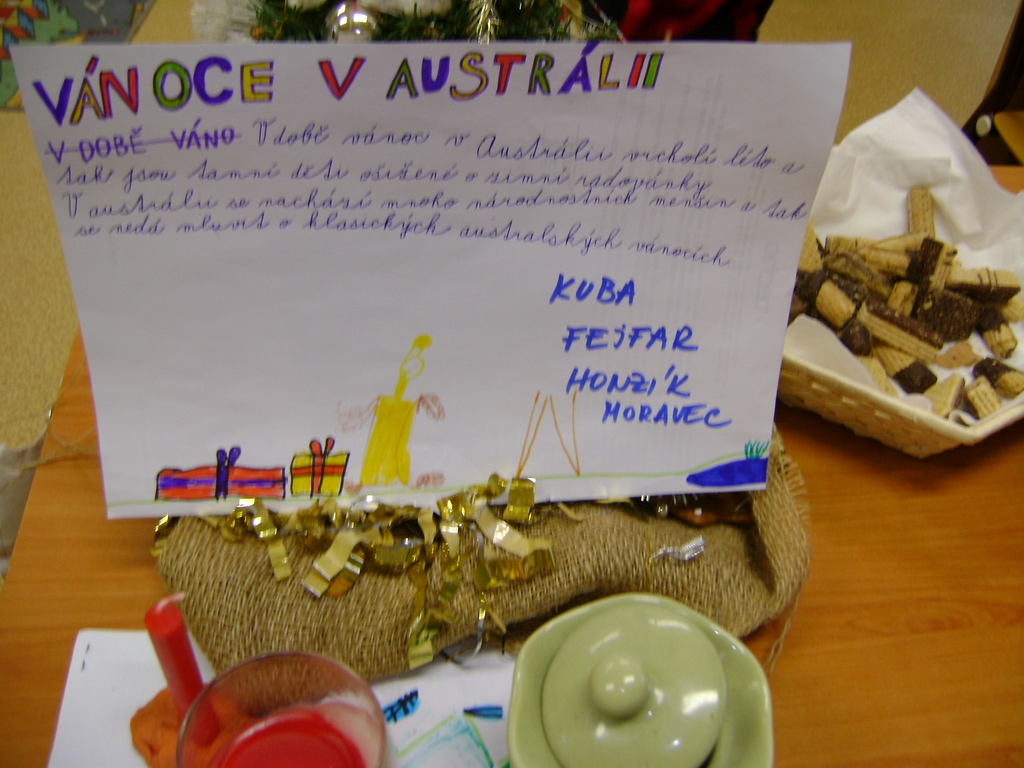 VÁNOCE V AUSTRÁLII
V DOBĚ VÁNO V době vánoc v Austrálii vrcholí léto a
tak jsou tamní děti ošizené o zimní radovánky.
V austrálii se nachází mnoho národnostních menšin a tak
se nedá mluvit o klasických australských vánocích
KUBA
FEJFAR
HONZÍK
MORAVEC